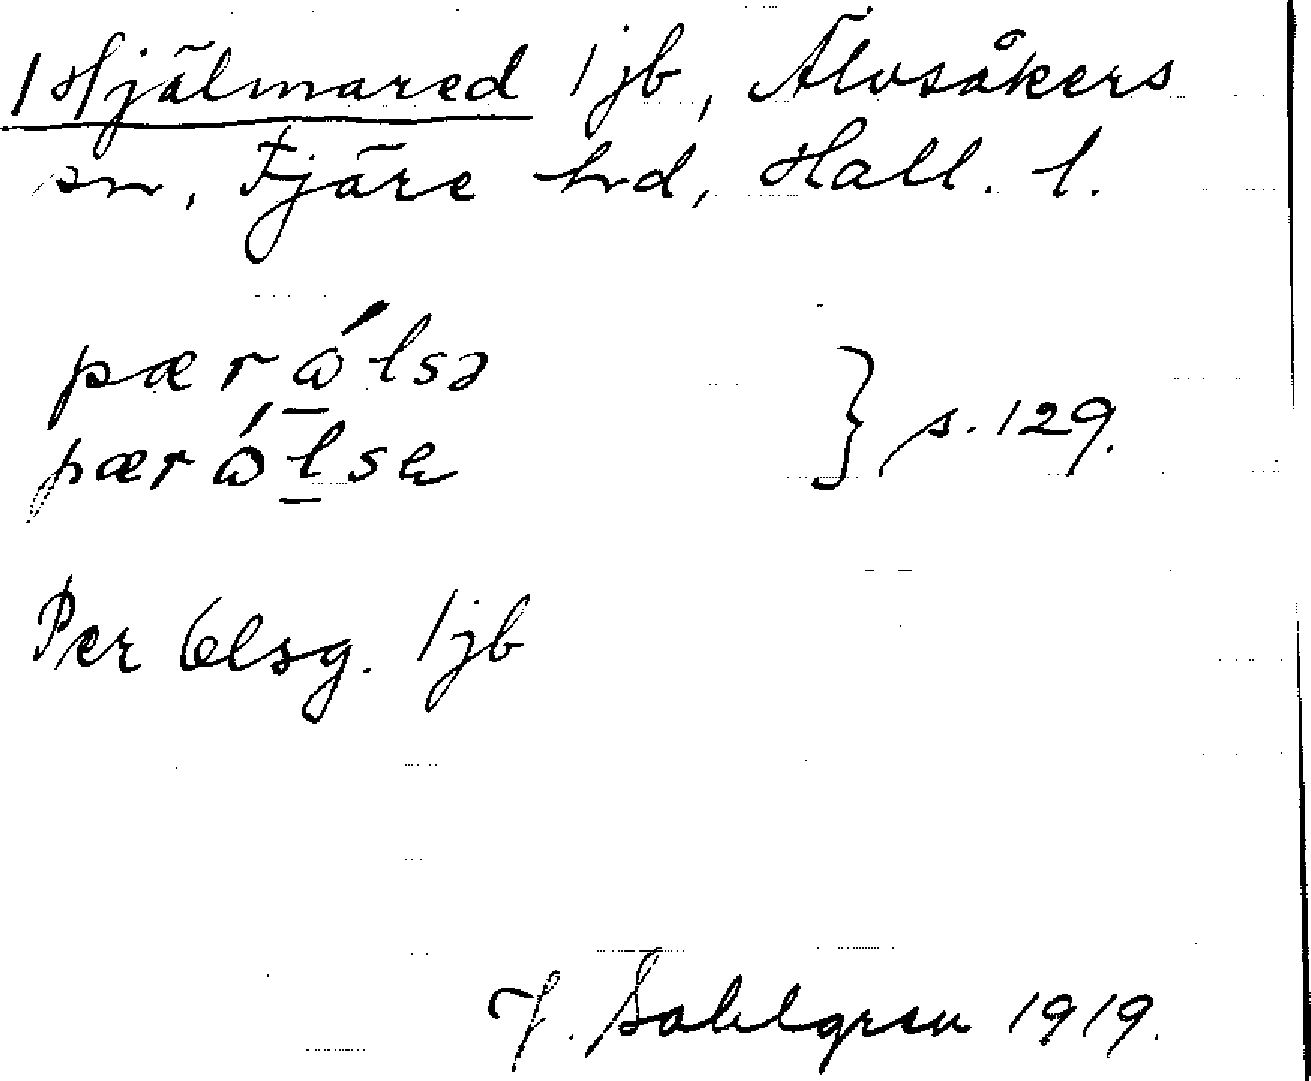 1 Hjälmared 1 jb, Älvsåkers
sn, Fjäre hd, Hall. l.
pærώlsə
pærώlsɐ } s. 129.
Per Olsg. 1 jb
J. Sahlgren 1919.